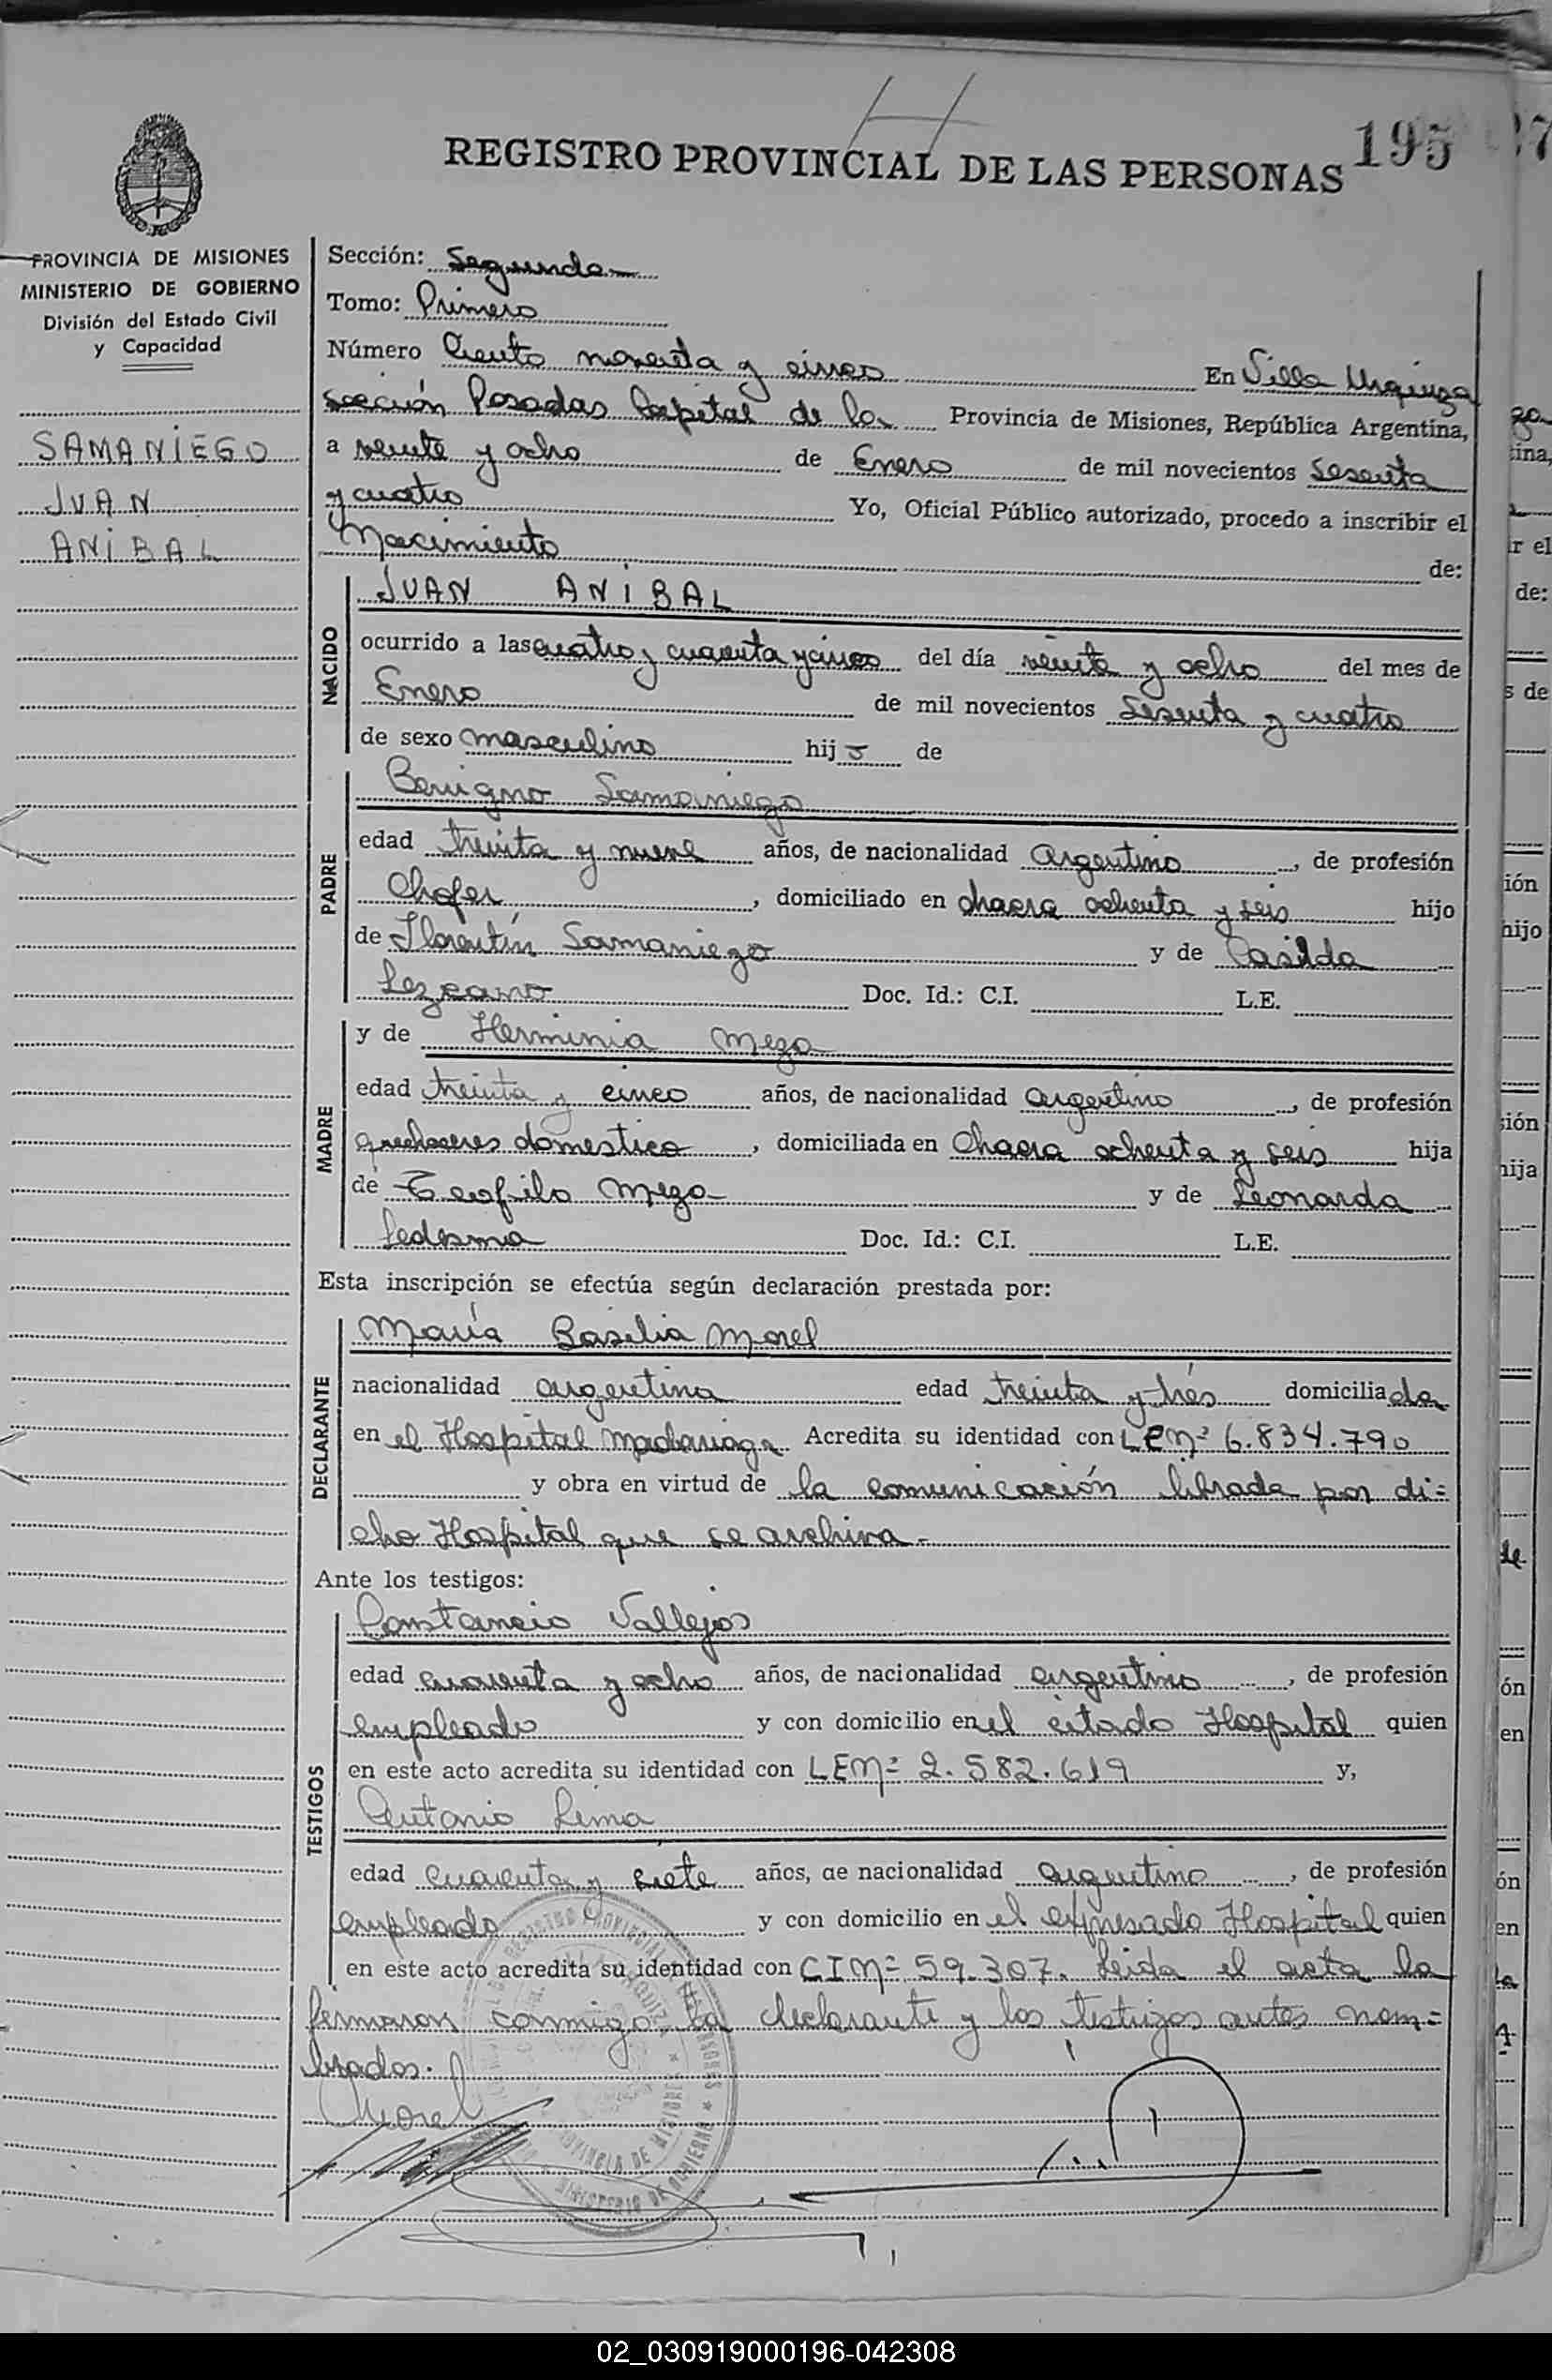 REGISTRO PROVINCIAL DE LAS PERSONAS
195
27
PROVINCIA DE MISIONES
MINISTERIO DE GOBIERNO
División del Estado Civil
y Capacidad
SAMANIEGO
JUAN
ANIBAL
Sección: Segunda
Tomo: Primero
Número Ciento noventa y cinco En Villa Urquiza
sección Posadas Capital de la Provincia de Misiones, República Argentina,
a veinte y ocho de Enero de mil novecientos sesenta
y cuatro Yo, Oficial Público autorizado, procedo a inscribir el
Nacimiento de:
NACIDO
JUAN ANIBAL
ocurrido a las cuatro y cuarenta y cinco del día veinte y ocho del mes de
Enero de mil novecientos sesenta y cuatro
de sexo masculino hijo de
PADRE
Benigno Samaniego
edad treinta y nueve años, de nacionalidad argentino, de profesión
Chofer, domiciliado en chacra ochenta y seis hijo
de Florentín Samaniego y de Casilda
Lezcano Doc. Id.: C.I. L.E.
MADRE
y de Herminia Meza
edad treinta y cinco años, de nacionalidad argentino, de profesión
quehaceres domestico, domiciliada en Chacra ochenta y seis hija
de Teofilo Meza y de Leonarda
Ledesma Doc. Id.: C.I. L.E.
Esta inscripción se efectúa según declaración prestada por:
DECLARANTE
María Basilia Morel
nacionalidad argentina edad treinta y trés domiciliada
en el Hospital Madariaga Acredita su identidad con LEnº 6.834.790
y obra en virtud de la comunicación librada por di=
cho Hospital que se archiva.-
Ante los testigos:
TESTIGOS
Constancio Vallejos
edad cuarenta y ocho años, de nacionalidad argentino, de profesión
empleado y con domicilio en el citado Hospital quien
en este acto acredita su identidad con LEnº 2.582.619 y,
Antonio Lima
edad cuarenta y siete años, de nacionalidad argentino, de profesión
empleado y con domicilio en el expresado Hospital quien
en este acto acredita su identidad con CInº 59.307. Leida el acta la
firmaron conmigo la declarante y los testigos antes nom=
brados.
Morel
02_030919000196-042308